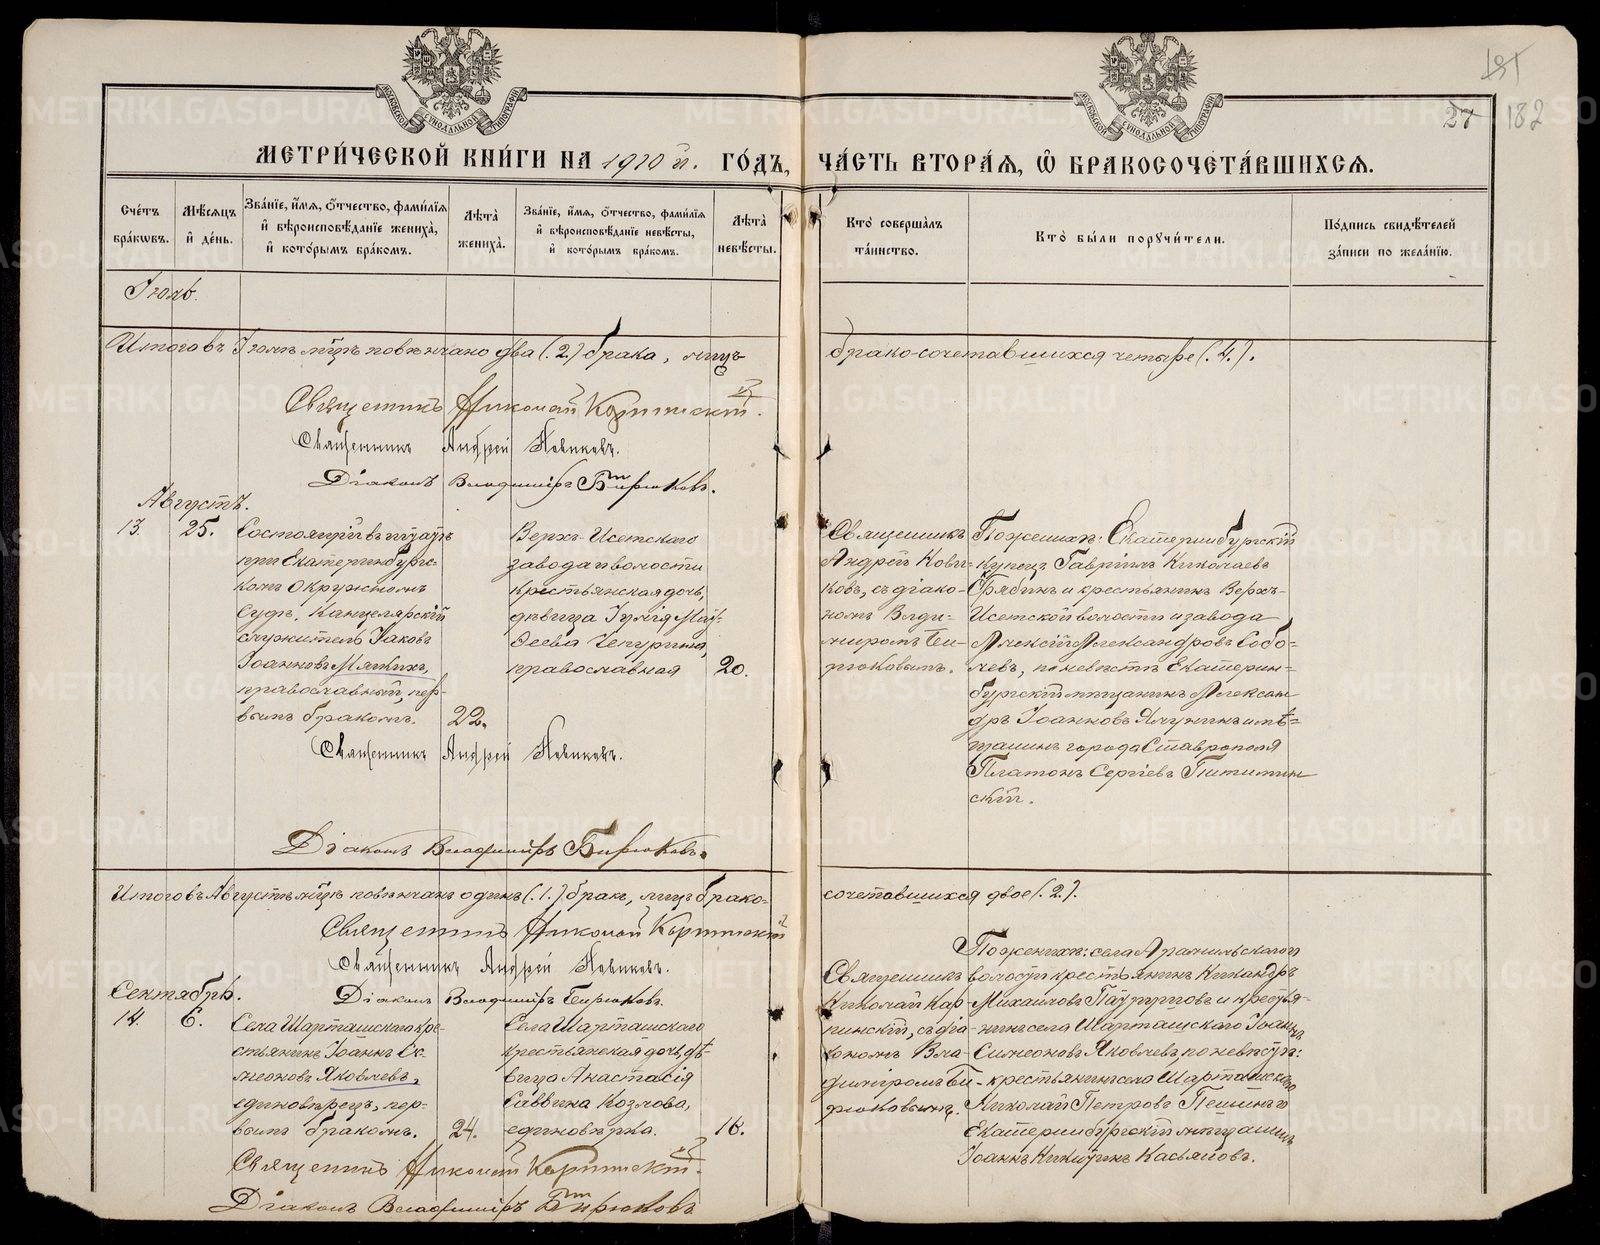 МЕТРИ́ЧЕСКОЙ КНИ́ГИ НА 1910 й. ГО́ДЪ, ЧА́СТЬ ВТОРА́Я, Ѡ БРАКОСОЧЕТА́ВШИХСЯ.
27 182
Сче́тъ бра́кѡвъ.
Мѣ́сяцъ и де́нь.
Зва́нїе, и́мя, ѻ́тчество, фами́лїя и вѣроисповѣ́данїе жениха̀, и кото́рымъ бра́комъ.
Лѣ́та жениха̀.
Зва́нїе, и́мя, ѻ́тчество, фами́лїя и вѣроисповѣ́данїе невѣ́сты, и кото́рымъ бра́комъ.
Лѣ́та невѣ́сты.
Кто̀ соверша́лъ та́инство.
Кто̀ бы́ли поручи́тели.
По́дпись свидѣ́телей за́писи по жела́нїю.
Іюль.
Итого въ Іюлѣ мцѣ повѣнчано два (.2.) брака, лицъ
брако-сочетавшихся четыре (.4.).
Священникъ Николай
Священникъ Андрей Новиковъ.
Діаконъ Владиміръ Бирюковъ.
Августъ.
13. 25.
Состоящій въ штатѣ
при Екатеринбургс-
комъ Окружномъ
Судѣ, Канцелярскій
служитель Іаковъ
Іоанновъ Мягкихъ,
православный, пер-
вымъ бракомъ.
22.
Верхъ-Исетскаго
завода и волости
крестьянская дочь,
дѣвица Іулія Мат-
ѳеева Чепурина,
православная
20.
Священникъ
Андрей Нови-
ковъ, съ діако-
номъ Влади-
миромъ Би-
рюковымъ.
По женихѣ: Екатеринбургскій
купецъ Гавріилъ Николаевъ
Рябинъ и крестьянинъ Верхъ-
Исетской волости и завода
Алексій Александровъ Собо-
левъ, по невѣстѣ Екатерин-
бургскій мѣщанинъ Алексан-
дръ Іоанновъ Ялунинъ и мѣ-
щанинъ города Ставрополя
Платонъ Сергіевъ Питимин-
скій.
Священникъ Андрей Новиковъ.
Діаконъ Владиміръ Бирюковъ.
Итого въ Августѣ мцѣ повѣнчанъ одинъ (.1.) бракъ, лицъ брако-
сочетавшихся двое (.2.).
Священникъ Николай
Священникъ Андрей Новиковъ.
Діаконъ Владиміръ Бирюковъ.
Сентябрь.
14. 6.
Села Шарташскаго кре-
стьянинъ Іоаннъ Си-
меоновъ Яковлевъ,
единовѣрецъ, пер-
вымъ бракомъ.
24.
Села Шарташскаго
крестьянская дочь, дѣ-
вица Анастасія
Саввина Козлова,
единовѣрка.
18.
Священникъ
Николай Кор-
нинскій, съ діа-
кономъ Вла-
диміромъ Би-
рюковымъ.
По женихѣ: села Арамильскаго
волости крестьянинъ Никандръ
Михаиловъ и крестья-
нинъ села Шарташскаго Іоаннъ
Симеоновъ Яковлевъ, по невѣстѣ:
крестьянинъ села Шарташскаго
Николай Петровъ и
Екатеринбургскій мѣщанинъ
Іоаннъ Никитинъ Касьяновъ.
Священникъ Николай
Діаконъ Владиміръ Бирюковъ
METRIKI.GASO-URAL.RU